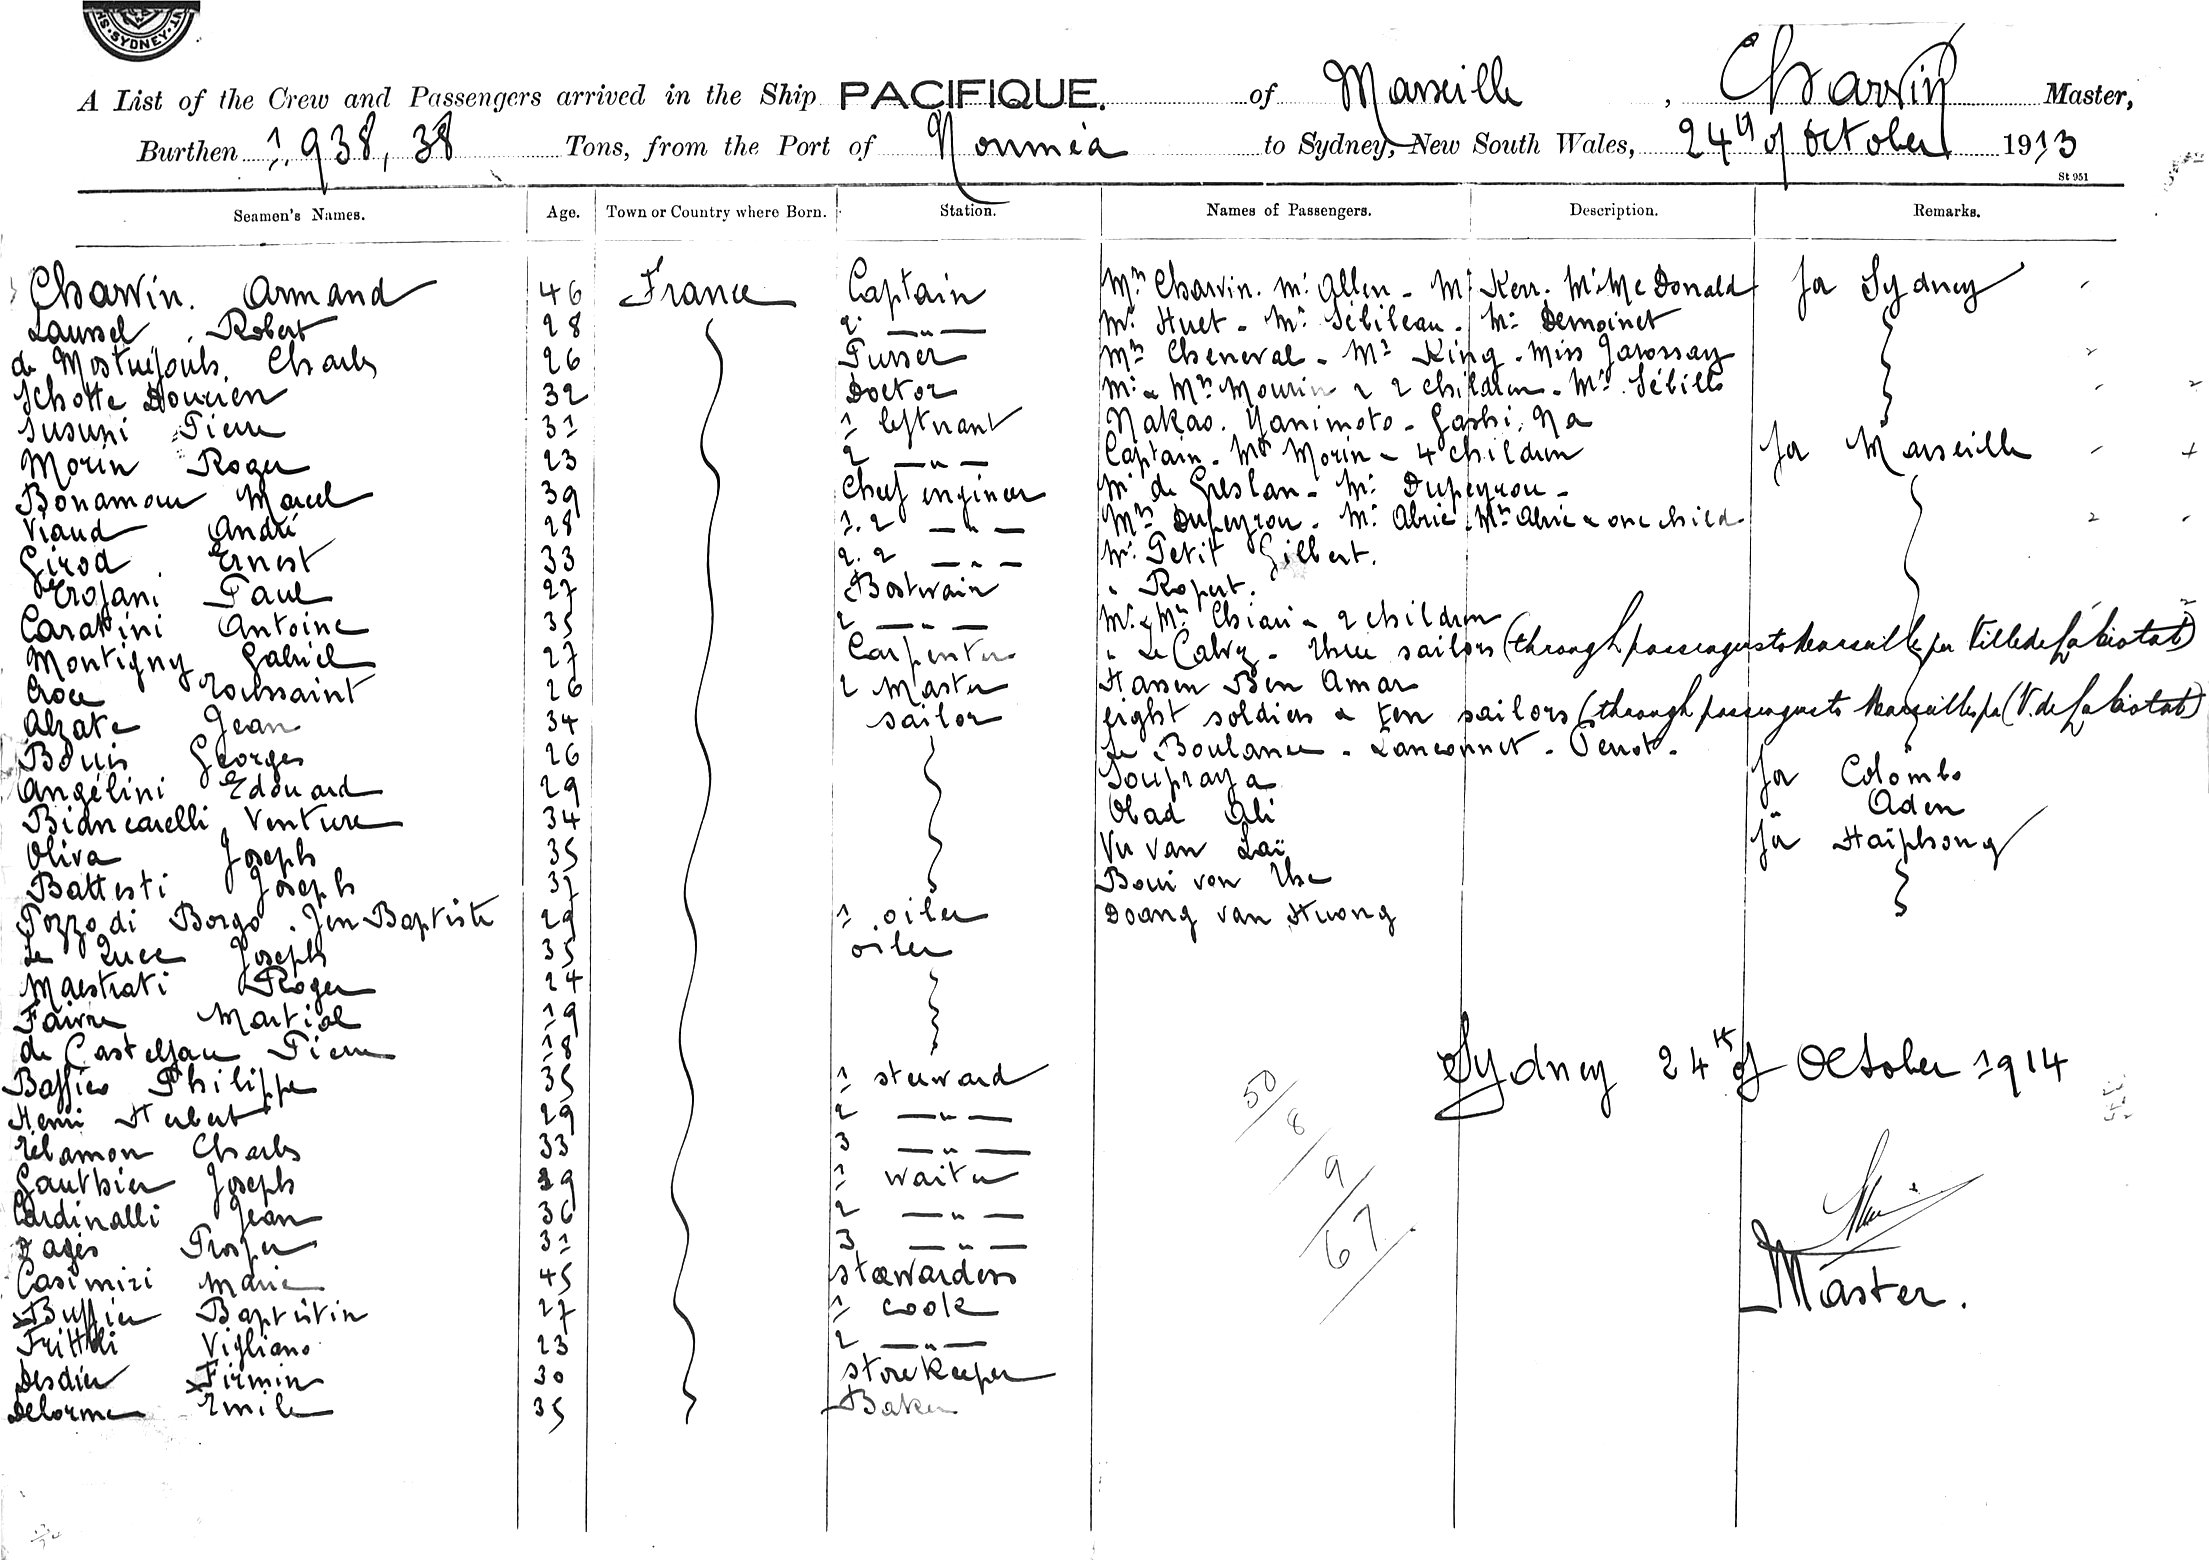 SYDNEY
A List of the Crew and Passengers arrived in the Ship PACIFIQUE. of Marseille, Charvin Master,
Burthen 1.938,38 Tons, from the Port of Nouméa to Sydney, New South Wales, 24th of October 1913
St 951
Seamen's Names. Age. Town or Country where Born. Station. Names of Passengers. Description. Remarks.
Charvin. Armand 46 France Captain Mrs Charvin. Mr Allen - Mr Kerr. Mr Mc Donald for Sydney
Laussel. Robert 28 2. —"— Mr Huet - Mr Sébileau. Mr Demoinet
de Mostuejouls. Charles 26 Purser Mrs Cheneval - Mr King - Miss Javossay
Schotte 32 Doctor Mr & Mrs Mourin & 2 children - Mr Sébille
Susuni Pierre 31 1 leftnant Nakao. Yanimoto - Gashi. Na
Morin Roger 23 2 —"— Captain - Mrs Morin - 4 children for Marseille
Bonamour Marcel 39 Cheef engineer Mr de Greslan - Mr Dupeyrou -
Viaud André 28 1. 2 —"— Mrs Dupeyrou - Mr Abrie. Mrs Abrie & one child
Girod Ernest 33 2. 2 —"— Mr Petit Gilbert.
Trojani Paul 27 Bostwain " Ropert.
Caratini Antoine 35 2 —"— Mr & Mrs Chiari & 2 children
Montigny Gabriel 27 Carpenter " Le Calvez - three sailors (through passengers to Marseille per Ville de la Ciotat)
Croce Toussaint 26 2 Master Hassen Ben Amar
Alzate Jean 34 sailor eight soldiers & ten sailors (through passengers to Marseilles per (V. de la Ciotat)
Bouis Georges 26 Le Boulance - Lanconnet - Perrot -
Angélini Edouard 29 Soupraya for Colombo
Biancarelli Venture 34 Obad Ali Aden
Oliva Joseph 35 Vu van Laï for Haïphong
Battesti Joseph 37 Boui van The
Pozzo di Borgo. Jen Baptiste 29 1 oiler Doang van Huong
Le Luce Joseph 35 oiler
Maestrati Roger 24
Faivre Martial 19
de Casteljau Pierre 18
Sydney 24th of October 1914
Baffico Philippe 35 1 steward
50
Henri Herbert 29 2 —"—
8
Télamon Charles 33 3 —"—
9
Gauthier Joseph 29 1 waiter
Cardinalli Jean 36 2 —"—
67
Pagès Prosper 31 3 —"—
Casimiri Marie 45 stewardess
Master.
Buffier Baptistin 27 1 cook
Frittoli Vigliano 23 2 —"—
Desdier Firmin 30 storekeeper
Delorme Emile 35 Baker